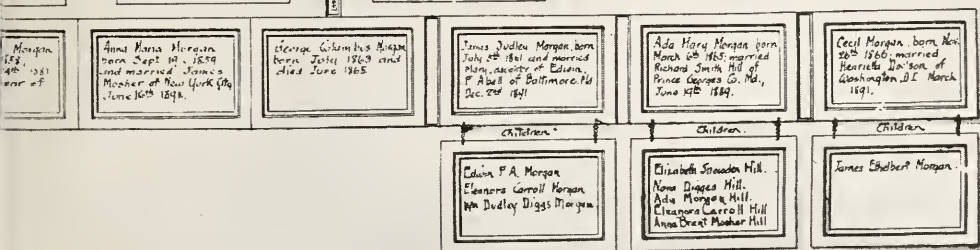 Morgan
1881
Anna Maria Morgan
born Sept 19. 1859
and married James
Mosher of New York City
June 16th 1898.
George Columbus Morgan
born July 1863 and
died June 1865
James Dudley Morgan, born
July 5th 1861 and married
Mary, daughter of Edwin,
F Abell of Baltimore, Md
Dec. 2nd 1891
Ada Mary Morgan born
March 6th 1865; married
Richard Smith Hill of
Prince Georges Co. Md.,
June 19th 1889.
Cecil Morgan. born Nov.
26th 1866: married
Henrietta of
Washington D.C March
1891.
Children
Children.
Children
Edwin F A. Morgan
Eleanora Carroll Morgan
Wm Dudley Diggs Morgan.
Elizabeth Snowden Hill.
Nora Digges Hill.
Ada Morgan Hill.
Eleanora Carroll Hill
Anna Brent Mosher Hill
James Ethelbert Morgan.